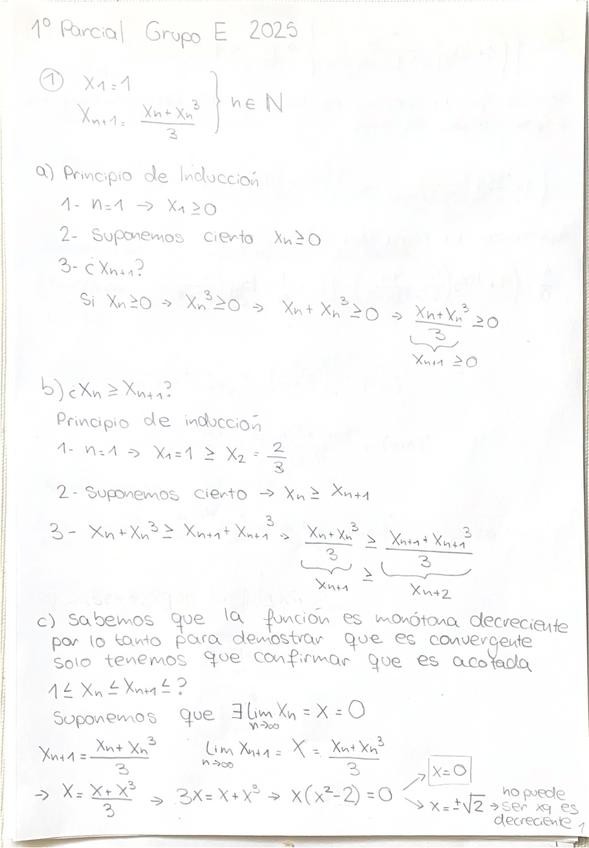 1º Parcial Grupo E 2025
① X₁=1
Xₙ₊₁= (Xₙ+Xₙ³)/3 } n∈ℕ
a) Principio de Inducción
1- n=1 → X₁≥0
2- Suponemos cierto Xₙ≥0
3- ¿Xₙ₊₁?
Si Xₙ≥0 → Xₙ³≥0 → Xₙ+Xₙ³≥0 → (Xₙ+Xₙ³)/3 ≥0
Xₙ₊₁ ≥0
b) ¿Xₙ ≥ Xₙ₊₁?
Principio de inducción
1- n=1 → X₁=1 ≥ X₂ = 2/3
2- Suponemos cierto → Xₙ ≥ Xₙ₊₁
3- Xₙ+Xₙ³ ≥ Xₙ₊₁+Xₙ₊₁³ → (Xₙ+Xₙ³)/3 ≥ (Xₙ₊₁+Xₙ₊₁³)/3
Xₙ₊₁ ≥ Xₙ₊₂
c) Sabemos que la función es monótona decreciente
por lo tanto para demostrar que es convergente
solo tenemos que confirmar que es acotada
1 ≤ Xₙ ≤ Xₙ₊₁ ≤ ?
Suponemos que ∃ lim Xₙ = X = 0
n→∞
Xₙ₊₁ = (Xₙ+Xₙ³)/3 lim Xₙ₊₁ = X = (Xₙ+Xₙ³)/3
n→∞
→ X = (X+X³)/3 → 3X = X+X³ → X(X²-2) = 0 → X=0
→ X=±√2 → no puede
ser xq es
decreciente
1